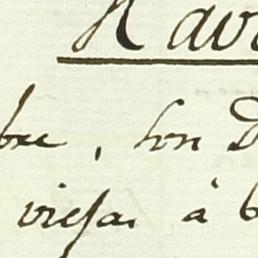 Nav
bre, son D
viesas à b